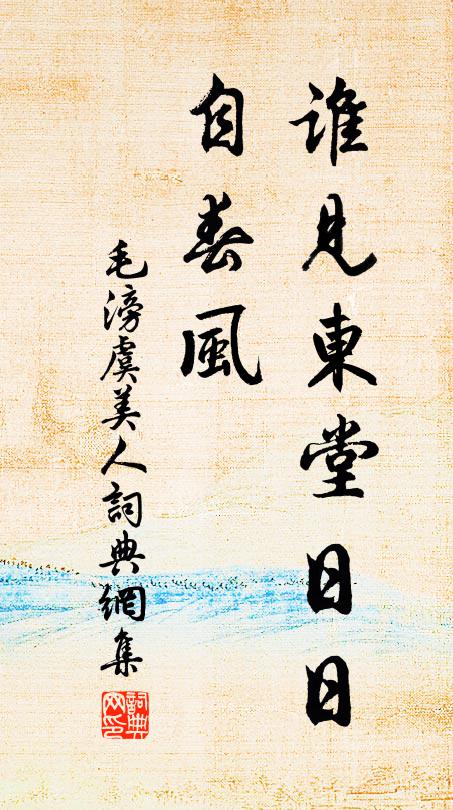 誰見東堂日日
自春風
毛滂虞美人詞典網集
詞典网印